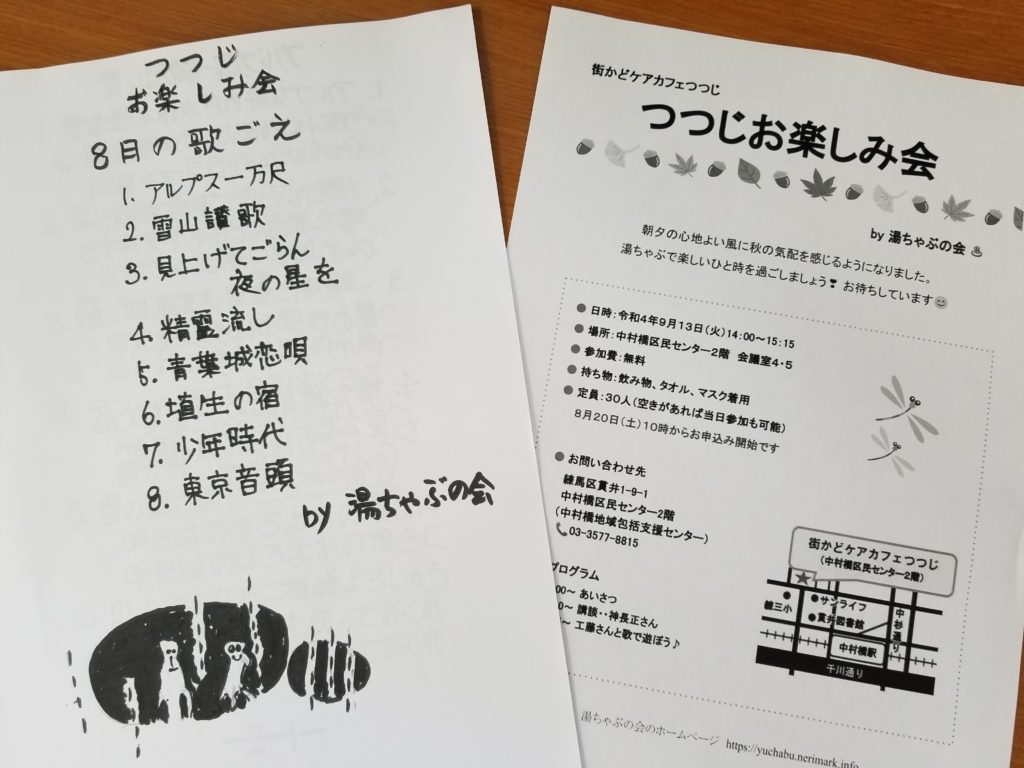 つつじ
お楽しみ会
8月の歌ごえ
1. アルプス一万尺
2. 雪山讃歌
3. 見上げてごらん
夜の星を
4. 精霊流し
5. 青葉城恋唄
6. 埴生の宿
7. 少年時代
8. 東京音頭
by 湯ちゃぶの会
街かどケアカフェつつじ
つつじお楽しみ会
by 湯ちゃぶの会♨
朝夕の心地よい風に秋の気配を感じるようになりました。
湯ちゃぶで楽しいひと時を過ごしましょう❣ お待ちしています😊
● 日時:令和4年9月13日(火)14:00～15:15
● 場所:中村橋区民センター2階 会議室4・5
● 参加費:無料
● 持ち物:飲み物、タオル、マスク着用
● 定員:30人(空きがあれば当日参加も可能)
8月20日(土)10時からお申込み開始です
● お問い合わせ先
練馬区貫井1-9-1
中村橋区民センター2階
(中村橋地域包括支援センター)
📞03-3577-8815
プログラム
00～ あいさつ
0～ 講談・・神長正さん
～ 工藤さんと歌で遊ぼう♪
街かどケアカフェつつじ
(中村橋区民センター2階)
練三小
サンライフ
貫井図書館
中杉通り
中村橋駅
千川通り
湯ちゃぶの会のホームページ https://yuchabu.nerimark.info